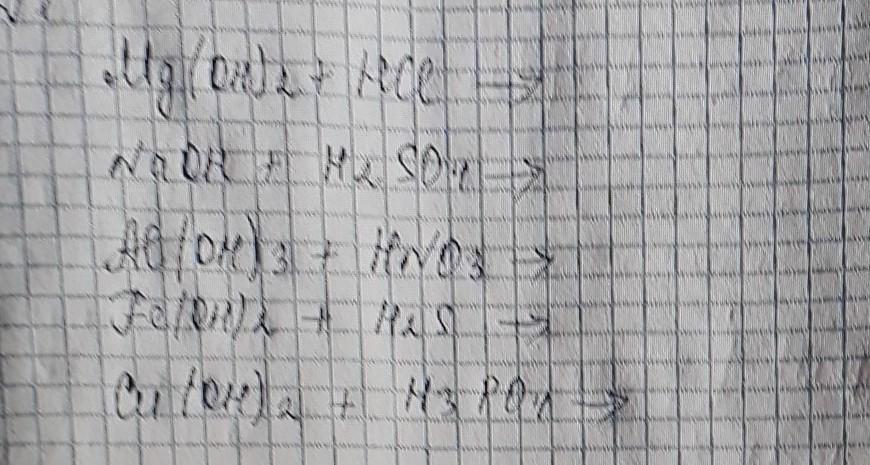 Mg(OH)2 + HCl →
NaOH + H2SO4 →
Al(OH)3 + HNO3 →
Fe(OH)2 + H2S →
Cu(OH)2 + H3PO4 →